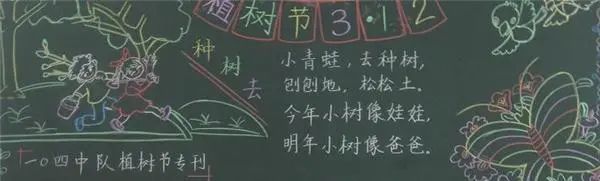 植树节3.12
种树去
小青蛙，去种树，
刨刨地，松松土.
今年小树像娃娃，
明年小树像爸爸.
一0四中队植树节专刊